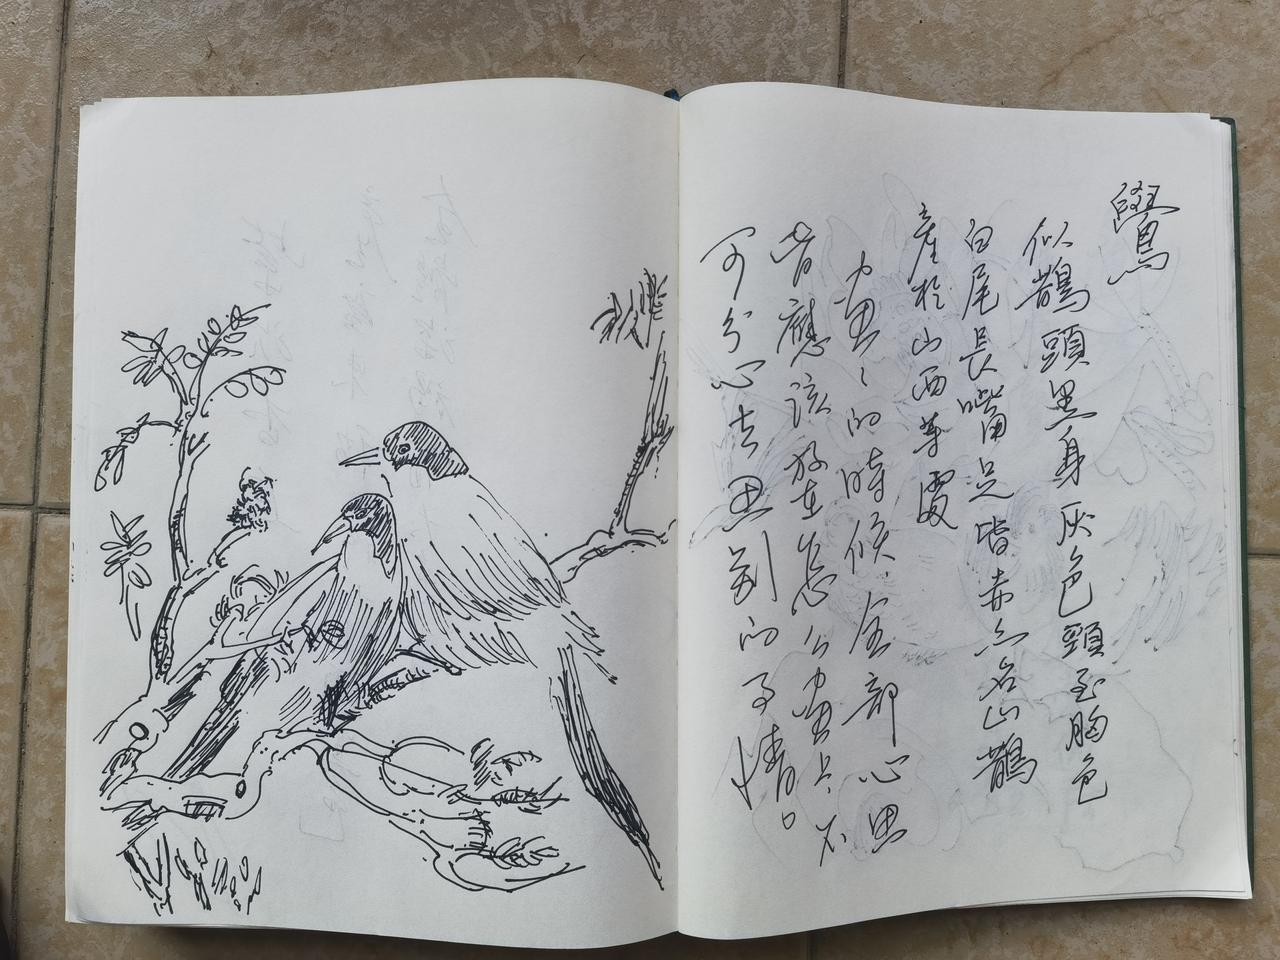 鷽
似鵲頭黑身灰色頸至胸色
白尾長嘴足皆赤亦名山鵲
產於山西等處
畫畫的時候全部心思
皆應該放在怎么畫上不
可分心去思别的事情。